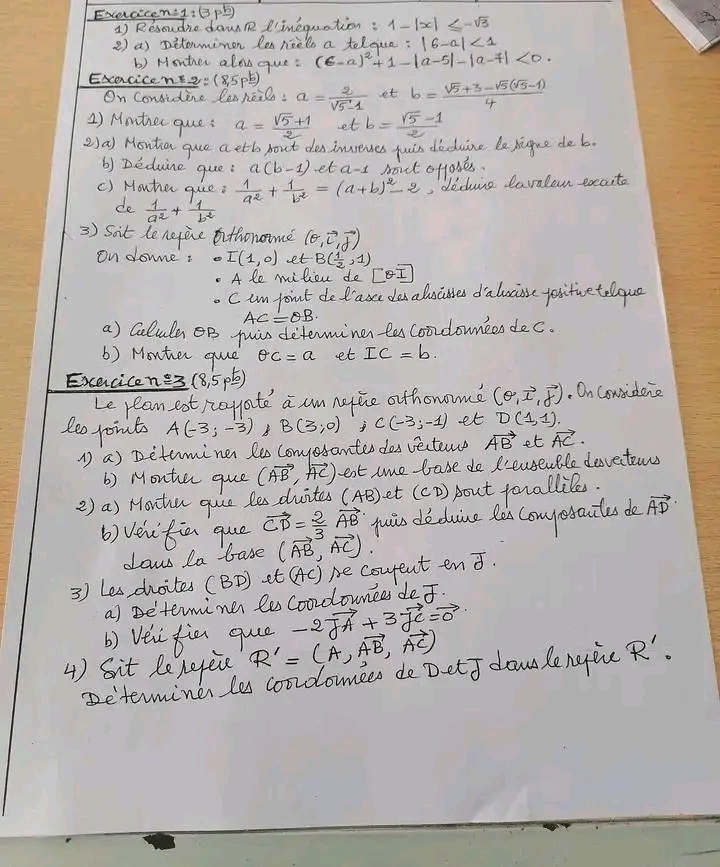 Exercice n°1: (3 pts)
1) Résoudre dans R l'inéquation : 1-|x| ≤ -√3
2) a) Déterminer les réels a tel que : |6-a| < 1
b) Montrer alors que : (6-a)²+1-|a-5|-|a-7| < 0.
Exercice n°2: (8,5pts)
On Considère les réels : a = 2/(√5-1) et b = (√5+3-√5(√5-1))/4
1) Montrer que : a = (√5+1)/2 et b = (√5-1)/2
2)a) Montrer que a et b sont des inverses puis déduire le signe de b.
b) Déduire que : a(b-1) et a-1 sont opposés.
c) Montrer que : 1/a² + 1/b² = (a+b)²-2, déduire la valeur exacte
de 1/a² + 1/b²
3) Soit le repère Orthonormé (O,i⃗,j⃗)
On donne : • I(1,0) et B(1/2,1)
• A le milieu de [OI]
• C un point de l'axe des abscisses d'abscisse positive tel que
AC = OB.
a) Calculer OB puis déterminer les Coordonnées de C.
b) Montrer que OC = a et IC = b.
Exercice n°3 (8,5pts)
Le plan est rapporté à un repère orthonormé (O,i⃗,j⃗). On Considère
les points A(-3;-3), B(3;0), C(-3;-1) et D(1,1).
1) a) Déterminer les Composantes des vecteurs AB⃗ et AC⃗.
b) Montrer que (AB⃗, AC⃗) est une base de l'ensemble des vecteurs
2) a) Montrer que les droites (AB) et (CD) sont parallèles.
b) Vérifier que CD⃗ = 2/3 AB⃗ puis déduire les Composantes de AD⃗
dans la base (AB⃗, AC⃗).
3) Les droites (BD) et (AC) se coupent en J.
a) Déterminer les Coordonnées de J.
b) Vérifier que -2JA⃗ + 3JC⃗ = 0⃗.
4) Sit le repère R' = (A, AB⃗, AC⃗)
Déterminer les coordonnées de D et J dans le repère R'.